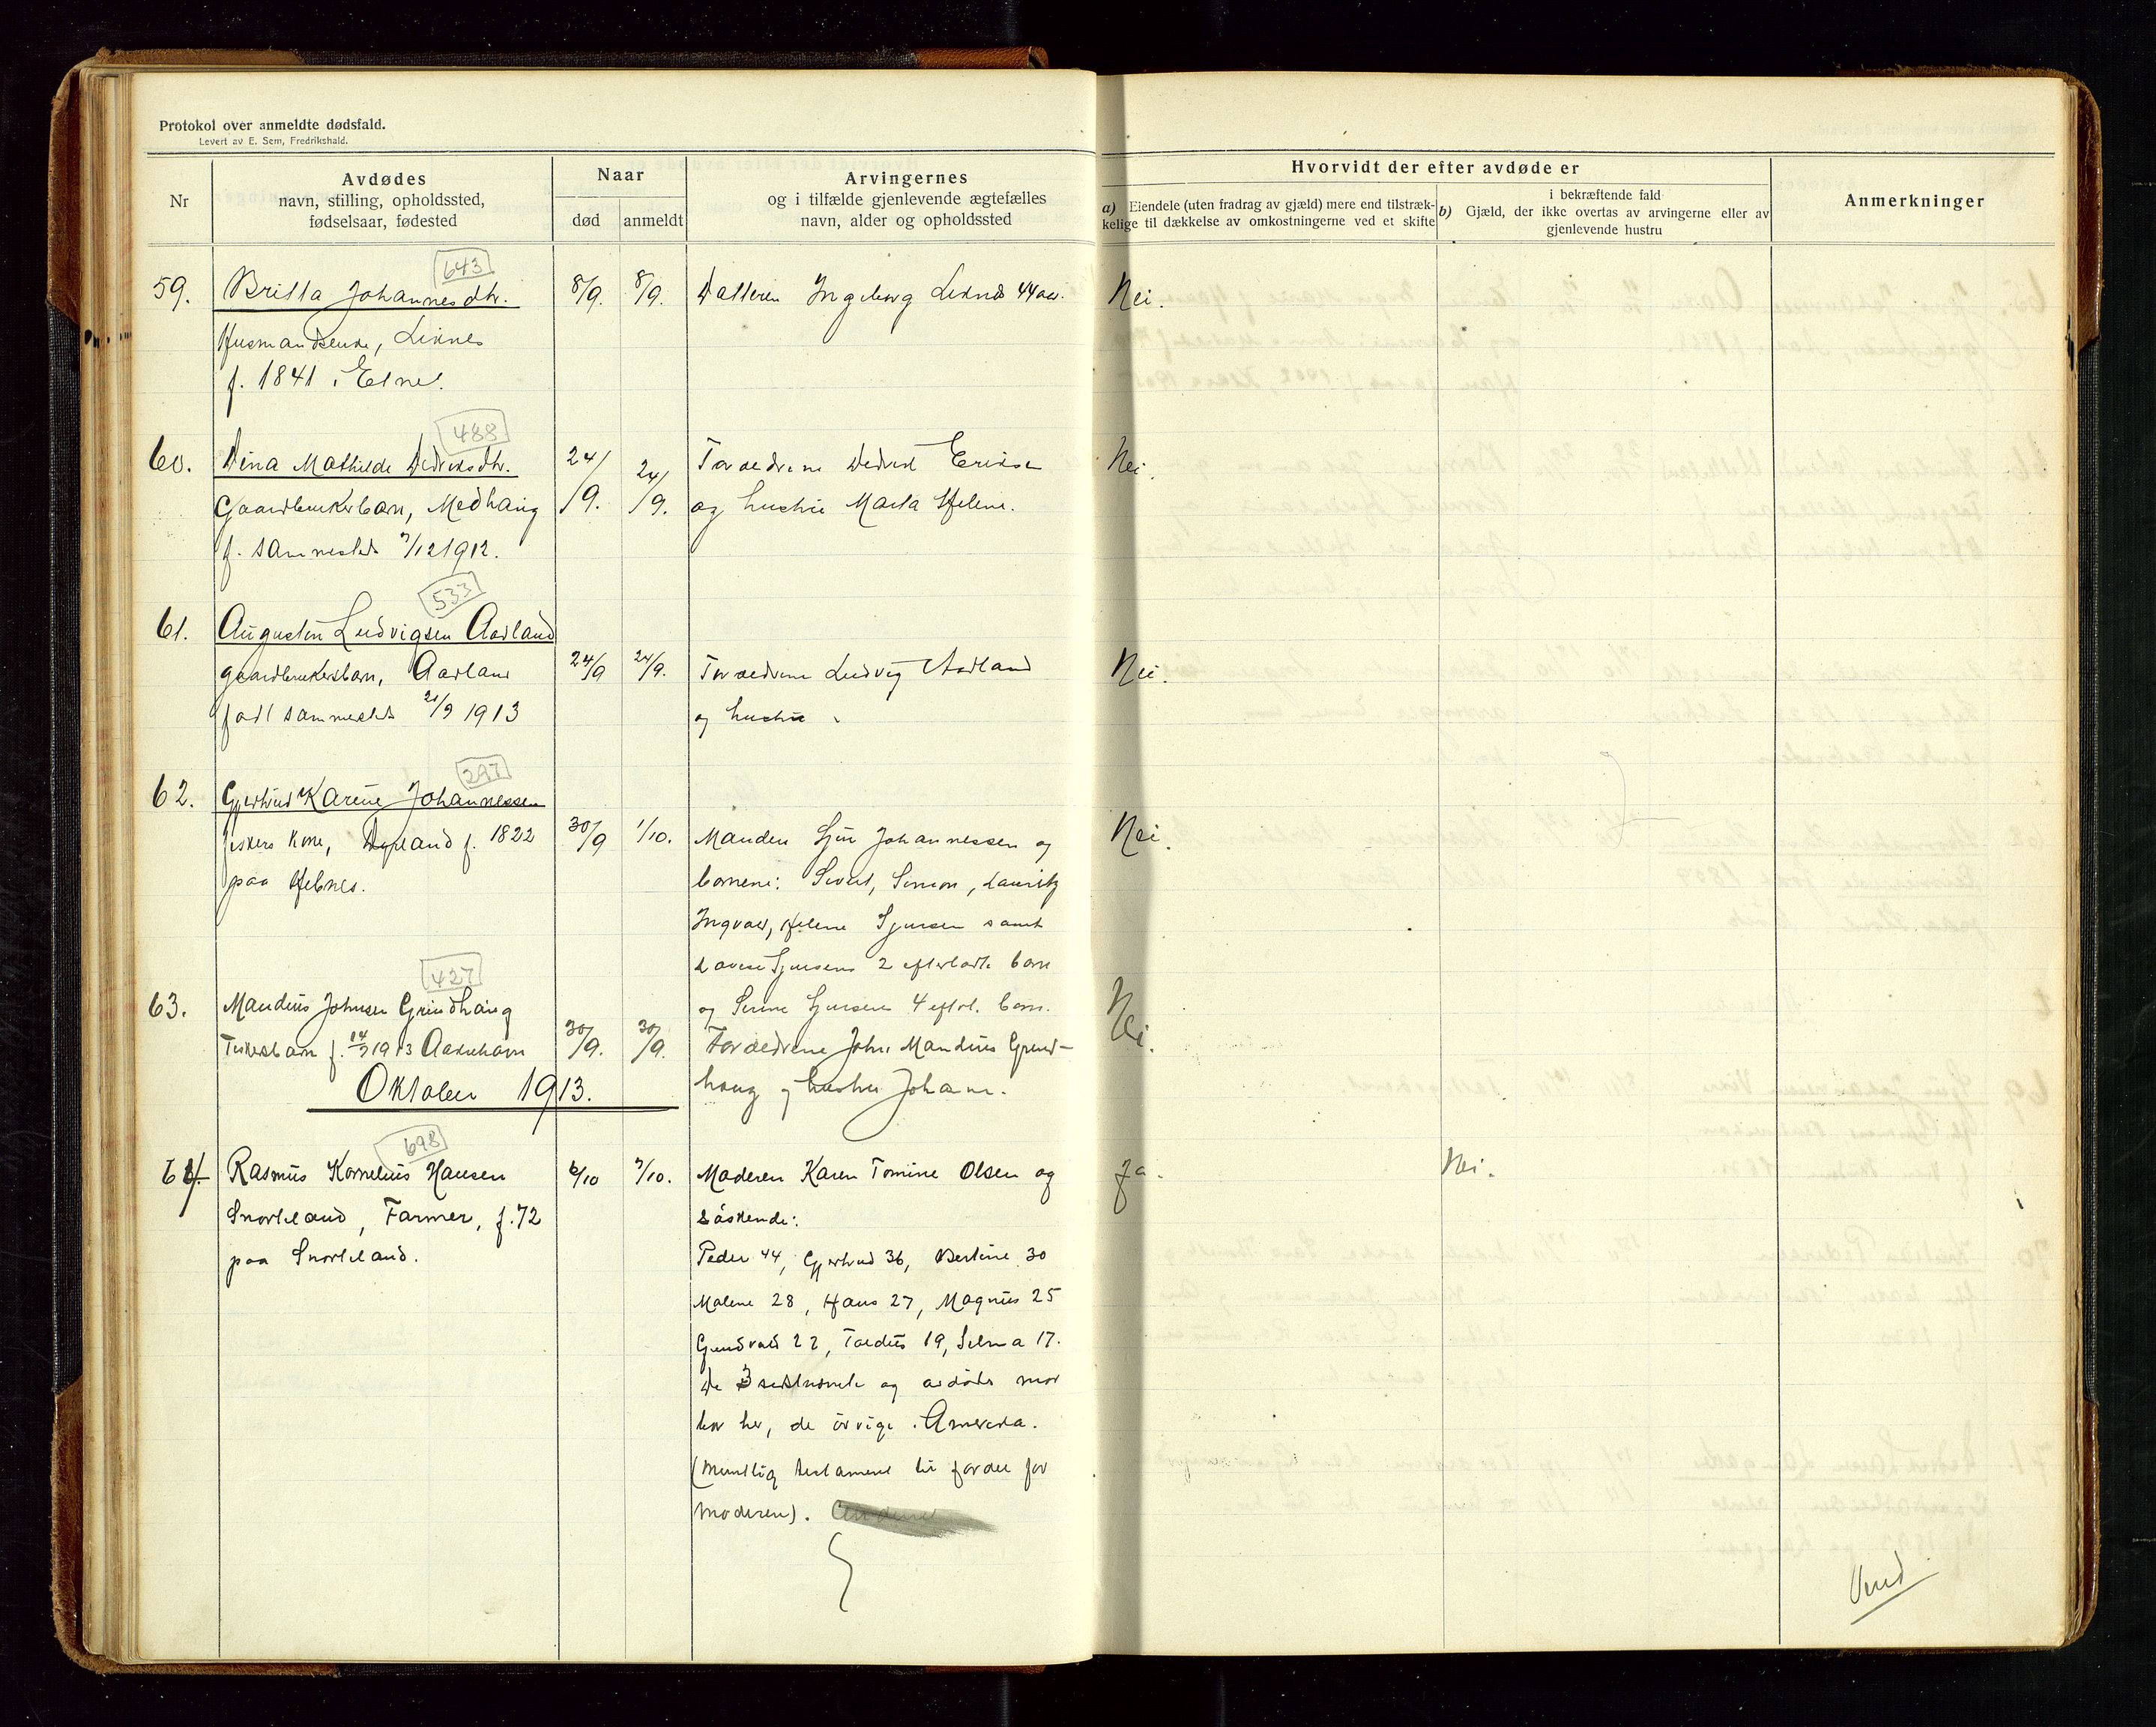 Protokol over anmeldte dødsfald.
Levert av E. Sem, Fredrikshald.
Nr
Avdødes
navn, stilling, opholdssted,
fødselsaar, fødested
Naar
død
anmeldt
Arvingernes
og i tilfælde gjenlevende ægtefælles
navn, alder og opholdssted
Hvorvidt der efter avdøde er
a) Eiendele (uten fradrag av gjæld) mere end tilstræk-
kelige til dækkelse av omkostningerne ved et skifte
i bekræftende fald
b) Gjæld, der ikke overtas av arvingerne eller av
gjenlevende hustru
Anmerkninger
643
59. Britta Johannesdtr. 8/9. 8/9. Datteren Ingeborg Leknes 44 aar. Nei.
Husmandsenke, Leknes
f. 1841 i Etne.
488
60. Dina Mathilde Didriksdtr. 24/9. 24/9. Forældrene Didrik Eriksen Nei.
Gaardbrukerbarn, Medhaug og hustru Marta Helene.
f. sammesteds 7/12 1912.
533
61. Augustin Ludvigsen Aarland
gaardbrukersbarn, Aarland 24/9 24/9. Forældrene Ludvig Aarland Nei.
født sammesteds 21/9 1913 og hustru
297
62. Gjertrud Karine Johannessen
fiskers kone, f. 1822 30/9 1/10. Manden Sjur Johannessen og Nei.
paa Hebnes. børnene: Sivert, Simon, Lauritz
Ingvar, Helene Sjursen samt
Sjursens 2 efterladte barn
427
og Serine Sjursens 4 eftrl. barn.
63. Mandius Johnsen Grindhaug Nei.
Fiskerbarn f. 14/9 1913 30/9. 30/9. Forældrene John Mandius Grind-
haug og hustru Johanne.
Oktober 1913.
698
64. Rasmus Kornelius Hansen 6/10 7/10. Moderen Karen Tomine Olsen og Ja. Nei.
Snorteland, Farmer, f. 72 søskende:
paa Snorteland. Peder 44, Gjertrud 36, Bertine 30
Malene 28, Hans 27, Magnus 25
Gundvald 22, 19, Selma 17.
De 3 sidstnævnte og avdødes mor
bor her, de øvrige i Amerika.
(Muntlig testament til fordel for
moderen).
Vend